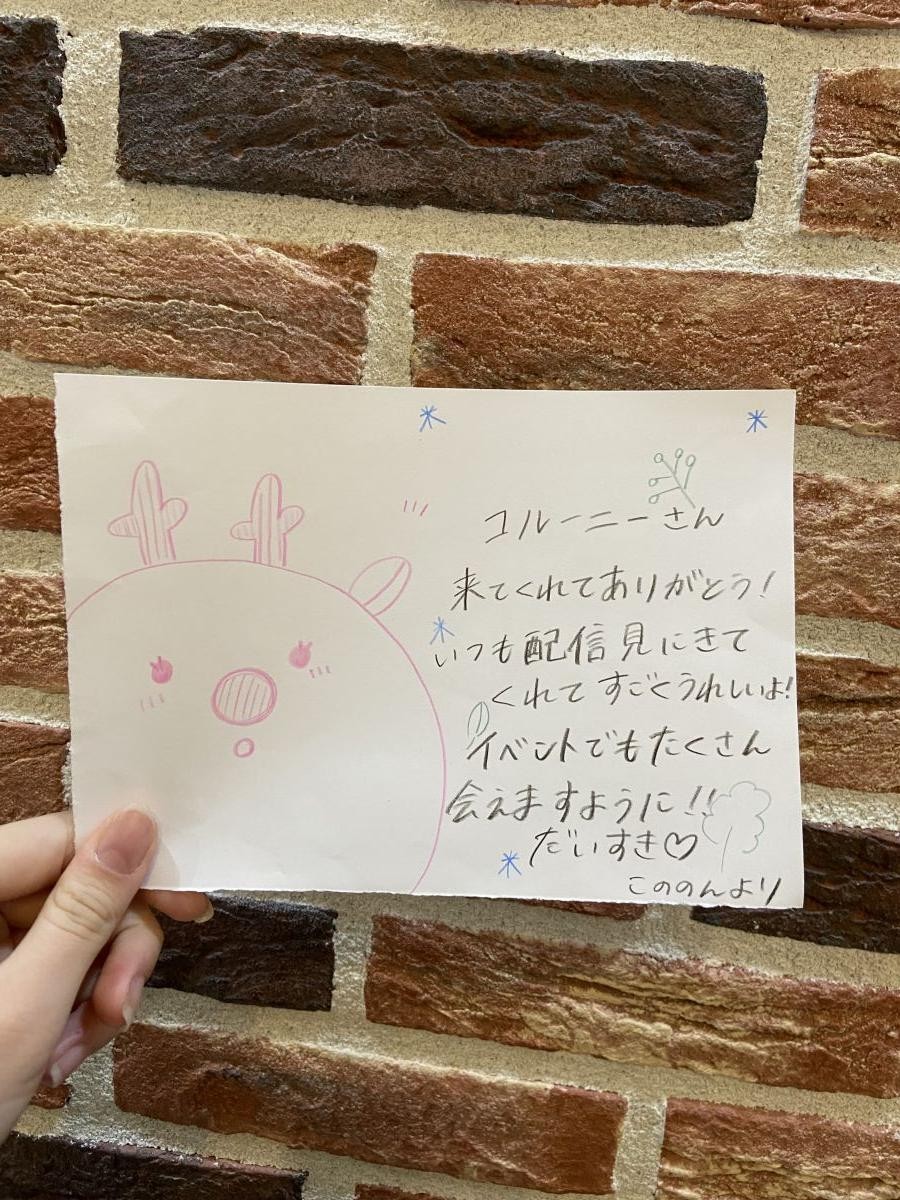 コルーニーさん
来てくれてありがとう!
いつも配信見にきて
くれてすごくうれしいよ!
イベントでもたくさん
会えますように!!
だいすき♡
こののんより